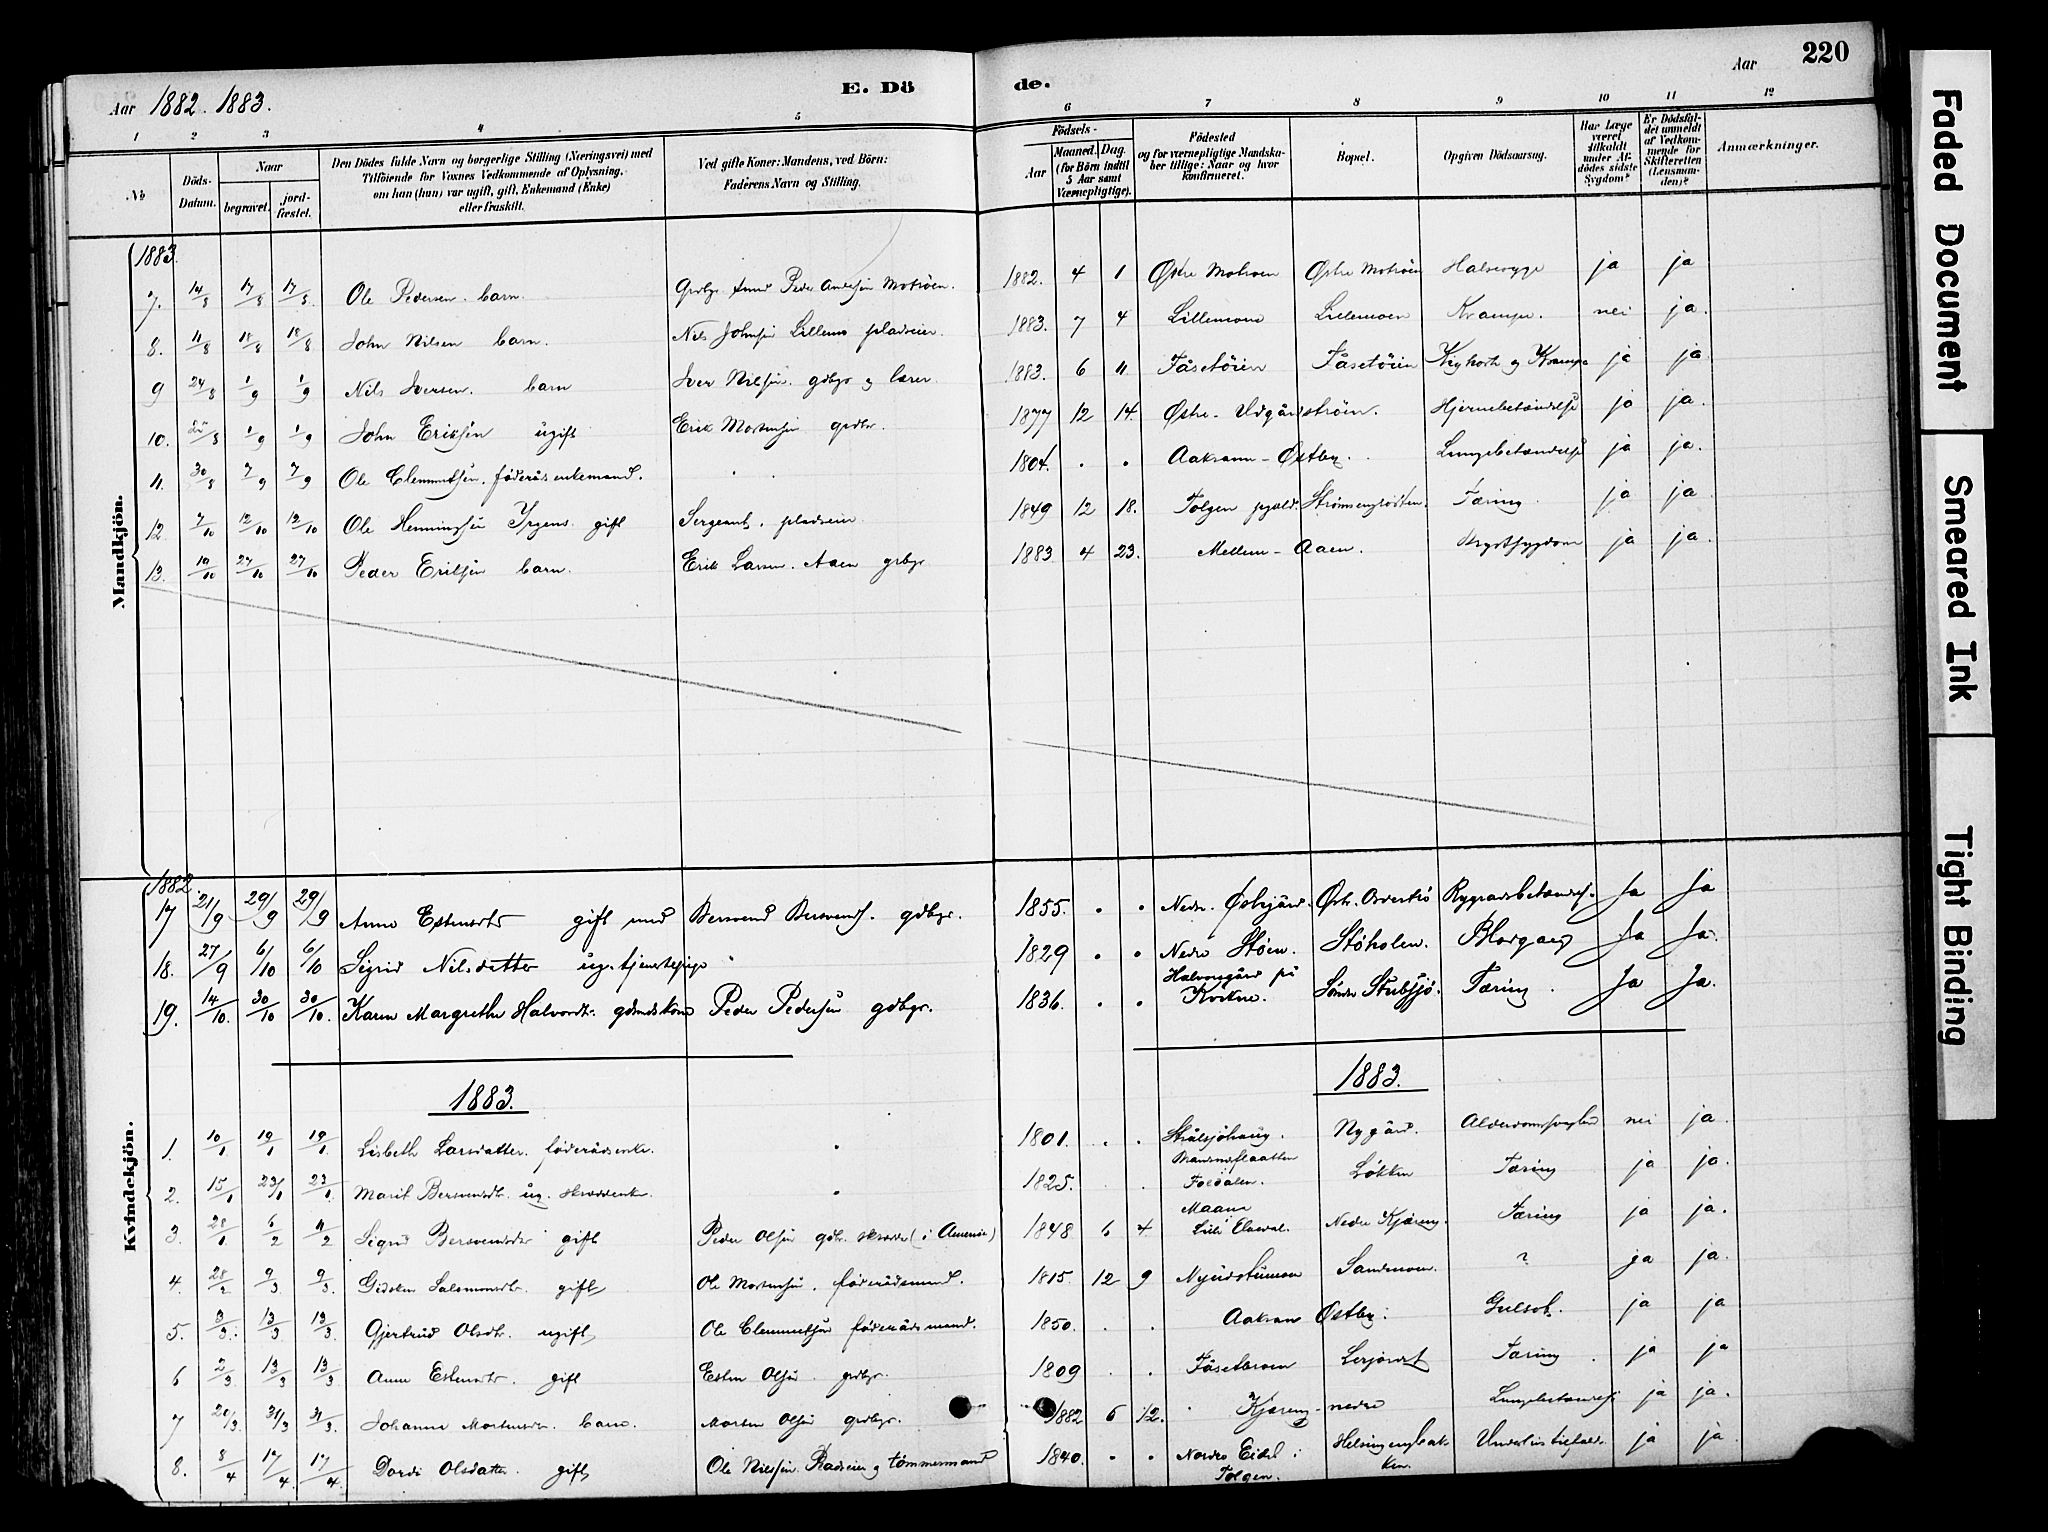 220
Aar 1882. 1883.
E. Dö
de.
Aar
1 2 3 4 5 6 7 8 9 10 11 12
No
Döds-Datum.
Naar
begravet.
jord-fæstet.
Den Dödes fulde Navn og borgerlige Stilling (Næringsvei) med
Tilföiende for Voxnes Vedkommende af Oplysning,
om han (hun) var ugift, gift, Enkemand (Enke)
eller fraskilt.
Ved gifte Koner: Mandens, ved Börn:
Faderens Navn og Stilling.
Födsels-
Aar
Maaned. Dag.
(for Börn indtil
5 Aar samt
Værnepligtige).
Födested
og for værnepligtige Mandska-
ber tillige: Naar og hvor
konfirmeret.
Bopæl.
Opgiven Dödsaarsag.
Har Læge
været
tilkaldt
under Af-
dödes sidste
Sygdom?
Er Dödsfal-
det anmeldt
af Vedkom-
mende for
Skifteretten
(Lensman-
den)?
Anmærkninger.
Mandkjön.
1883.
7. 14/8 17/8 17/8 Ole Pedersen. barn. Peder Motröen. 1882. 4 1 Østre Motroen Østre Motröen Halssyge ja ja
8. 11/8 18/8 18/8 John Nilsen barn. Nils Johnsen Lillemo pladseier. 1883. 7 4 Lillemoen Lillemoen Krampe. nei ja.
9 24/8 1/9 1/9 Nils Iversen. barn Iver Nilsen. gdbgr og lærer 1883. 6 11 Fåsetöien Fåsetöien Kighoste og Krampe ja ja.
10. 1/9 1/9 John Eriksen ugift Erik Mortensen grdbr. 1877 12 14. Østre- Udgårdströen. Hjernebetændelse ja ja.
11. 30/8 7/9 7/9 Ole Clemmetsen. föderåds enkemand. 1804. Aakrann - Østby. Lungebetændelse ja ja.
12. 7/10 12/10 12/10 Ole Henningsen Yrgens gift Sergeant, pladseier 1849 12 18. Tolgen Tæring. ja ja
13. 19/10 27/10 27/10 Peder Eriksen barn. Erik Larsen. Aaen grbgr 1883 4 23. Mellem - Aaen. Brystsygdom ja ja.
Kvindekjön.
1882.
17 21/9 29/9 29/9 Anne Estensdtr gift med Bersvend Bersvends. gdbgr. 1855. Nedre. Østr. Rygradsbetændels. Ja Ja
18. 27/9 6/10 6/10 Sigrid Nilsdatter ug. tjenestepige 1829 Nedre Støen. Støholen. Ja Ja.
19. 14/10. 30/10 30/10. Karen Margrethe Halvorsdtr. gdmdskone Peder Pedersen gdbgr. 1836. Halvorsgård på Kvikne. Søndre Stubsjö. Tæring. Ja Ja.
1883.
1883.
1. 10/1 19/1 19/1 Lisbeth Larsdatter. föderådsenke. 1801. Strålsjöhaug. Nygård. nei ja.
2. 15/1 23/1 23/1 Marit Bersvensdtr. ug. 1825. Foldalen. Løkken Tæring ja ja.
3. 28/1 6/2 4/2 Sigrid Bersvensdtr gift Peder Olsen (i Amerika) 1848 6 4 Nedre Kjæreng. Tæring ja ja.
4. 28/2 9/3 9/3. Gidsken Salomonsdtr. gift Ole Mortensen. föderådsmand. 1815. 12 9 Sandmoen. ? ja ja.
5. 3/3. 13/3 13/3. Gjertrud Olsdtr. ugift Ole Clemmetsen föderådsmand. 1850. Aakran Østby. Gulsot. ja ja
6 2/3. 13/3 13/3 Anne Estensdtr. gift Esten Olsen grdbgr. 1809 Tæring. ja ja
7 20/3. 31/3 31/3. Johanne Mortensdtr barn. Morten Olsen grdbgr. 1882 6 12. Kjæreng - nedre Lungebetændelse ja ja.
8. 8/4 17/4. 17/4. Dordi Olsdatter. gift Ole Nilssen. Pladseier og tömmermand 1840. Nordre Eidet i Tolgen. Helsingengbakken. ja ja.
Faded Document
Smeared Ink
Tight Binding